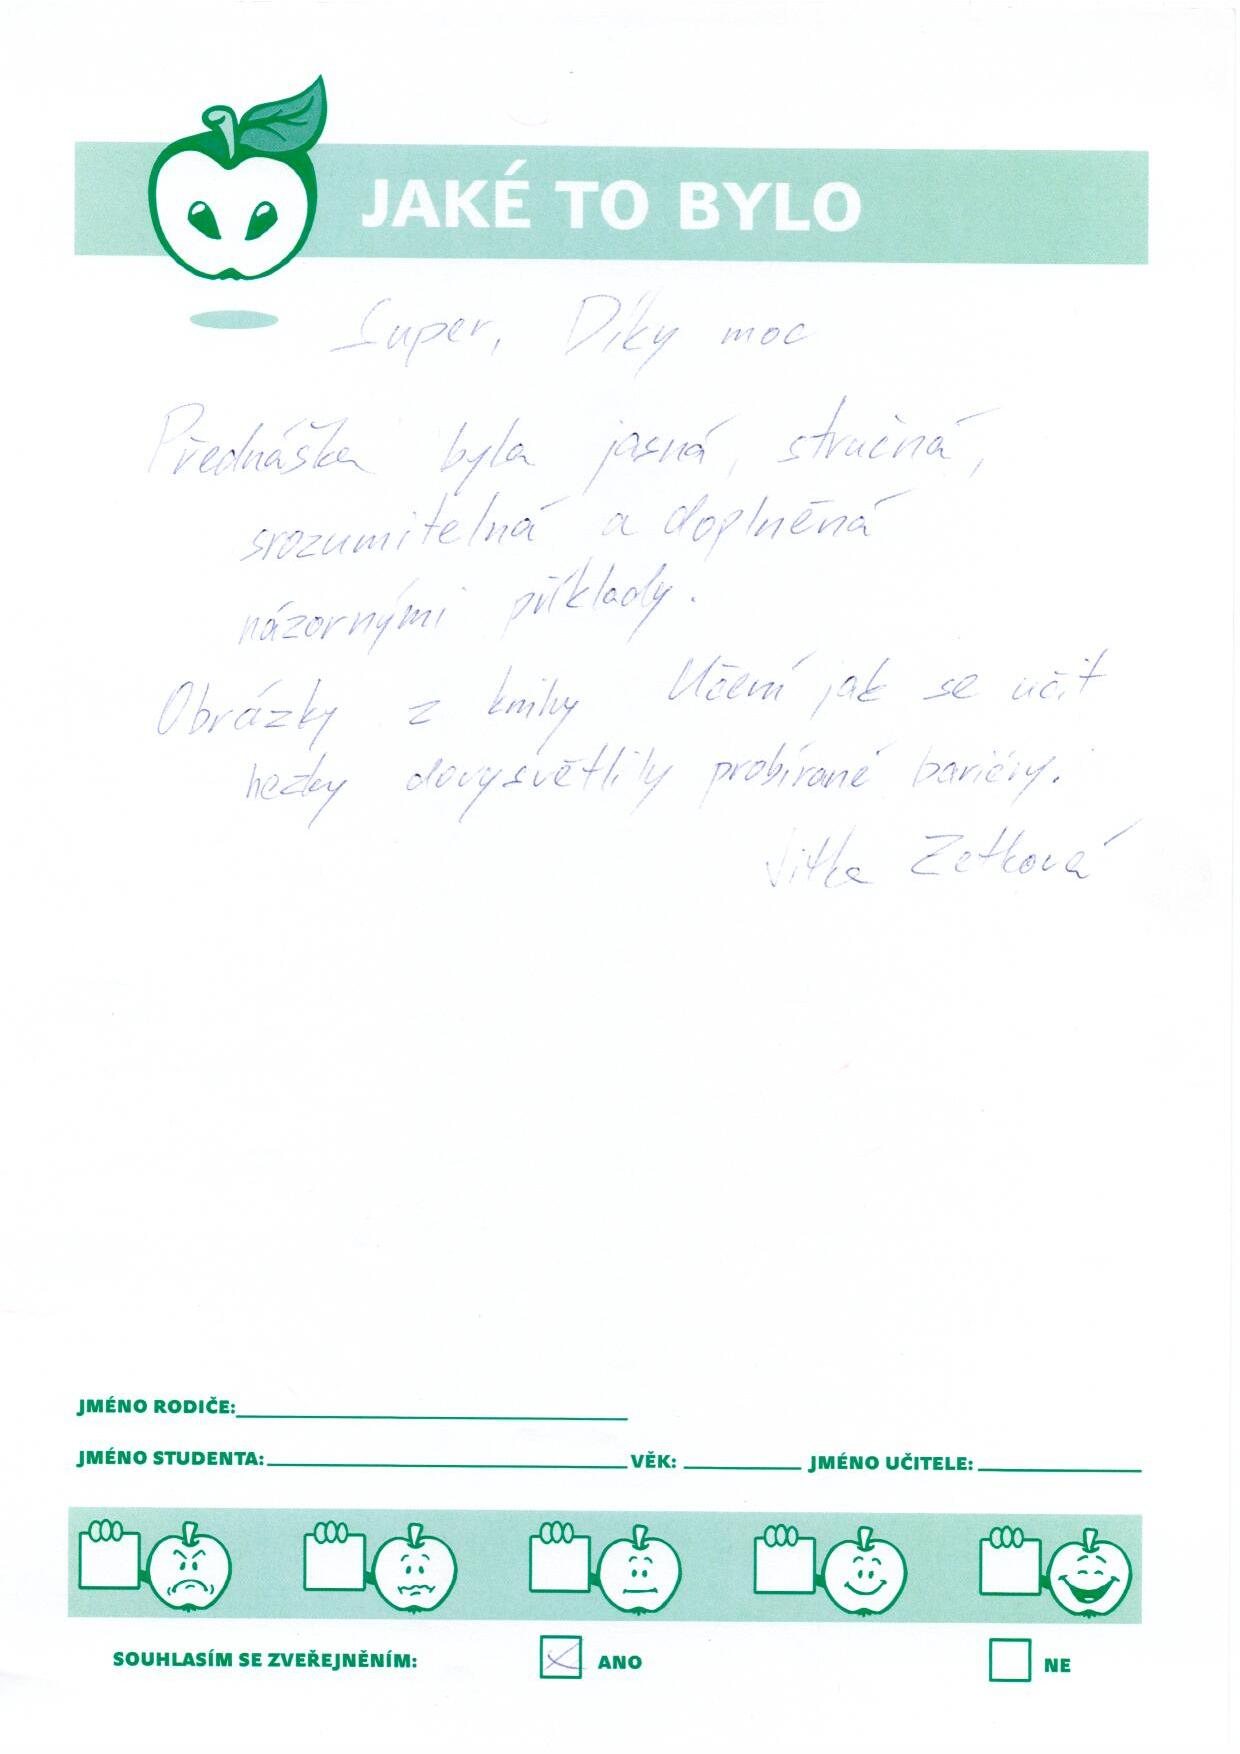 JAKÉ TO BYLO
Super, Díky moc
Přednáška byla jasná, stručná,
srozumitelná a doplněná
názornými příklady.
Obrázky z knihy Učení jak se učit
hezky dovysvětlily probírané bariéry.
Jitka Zetková
JMÉNO RODIČE:
JMÉNO STUDENTA: VĚK: JMÉNO UČITELE:
SOUHLASÍM SE ZVEŘEJNĚNÍM: ANO NE